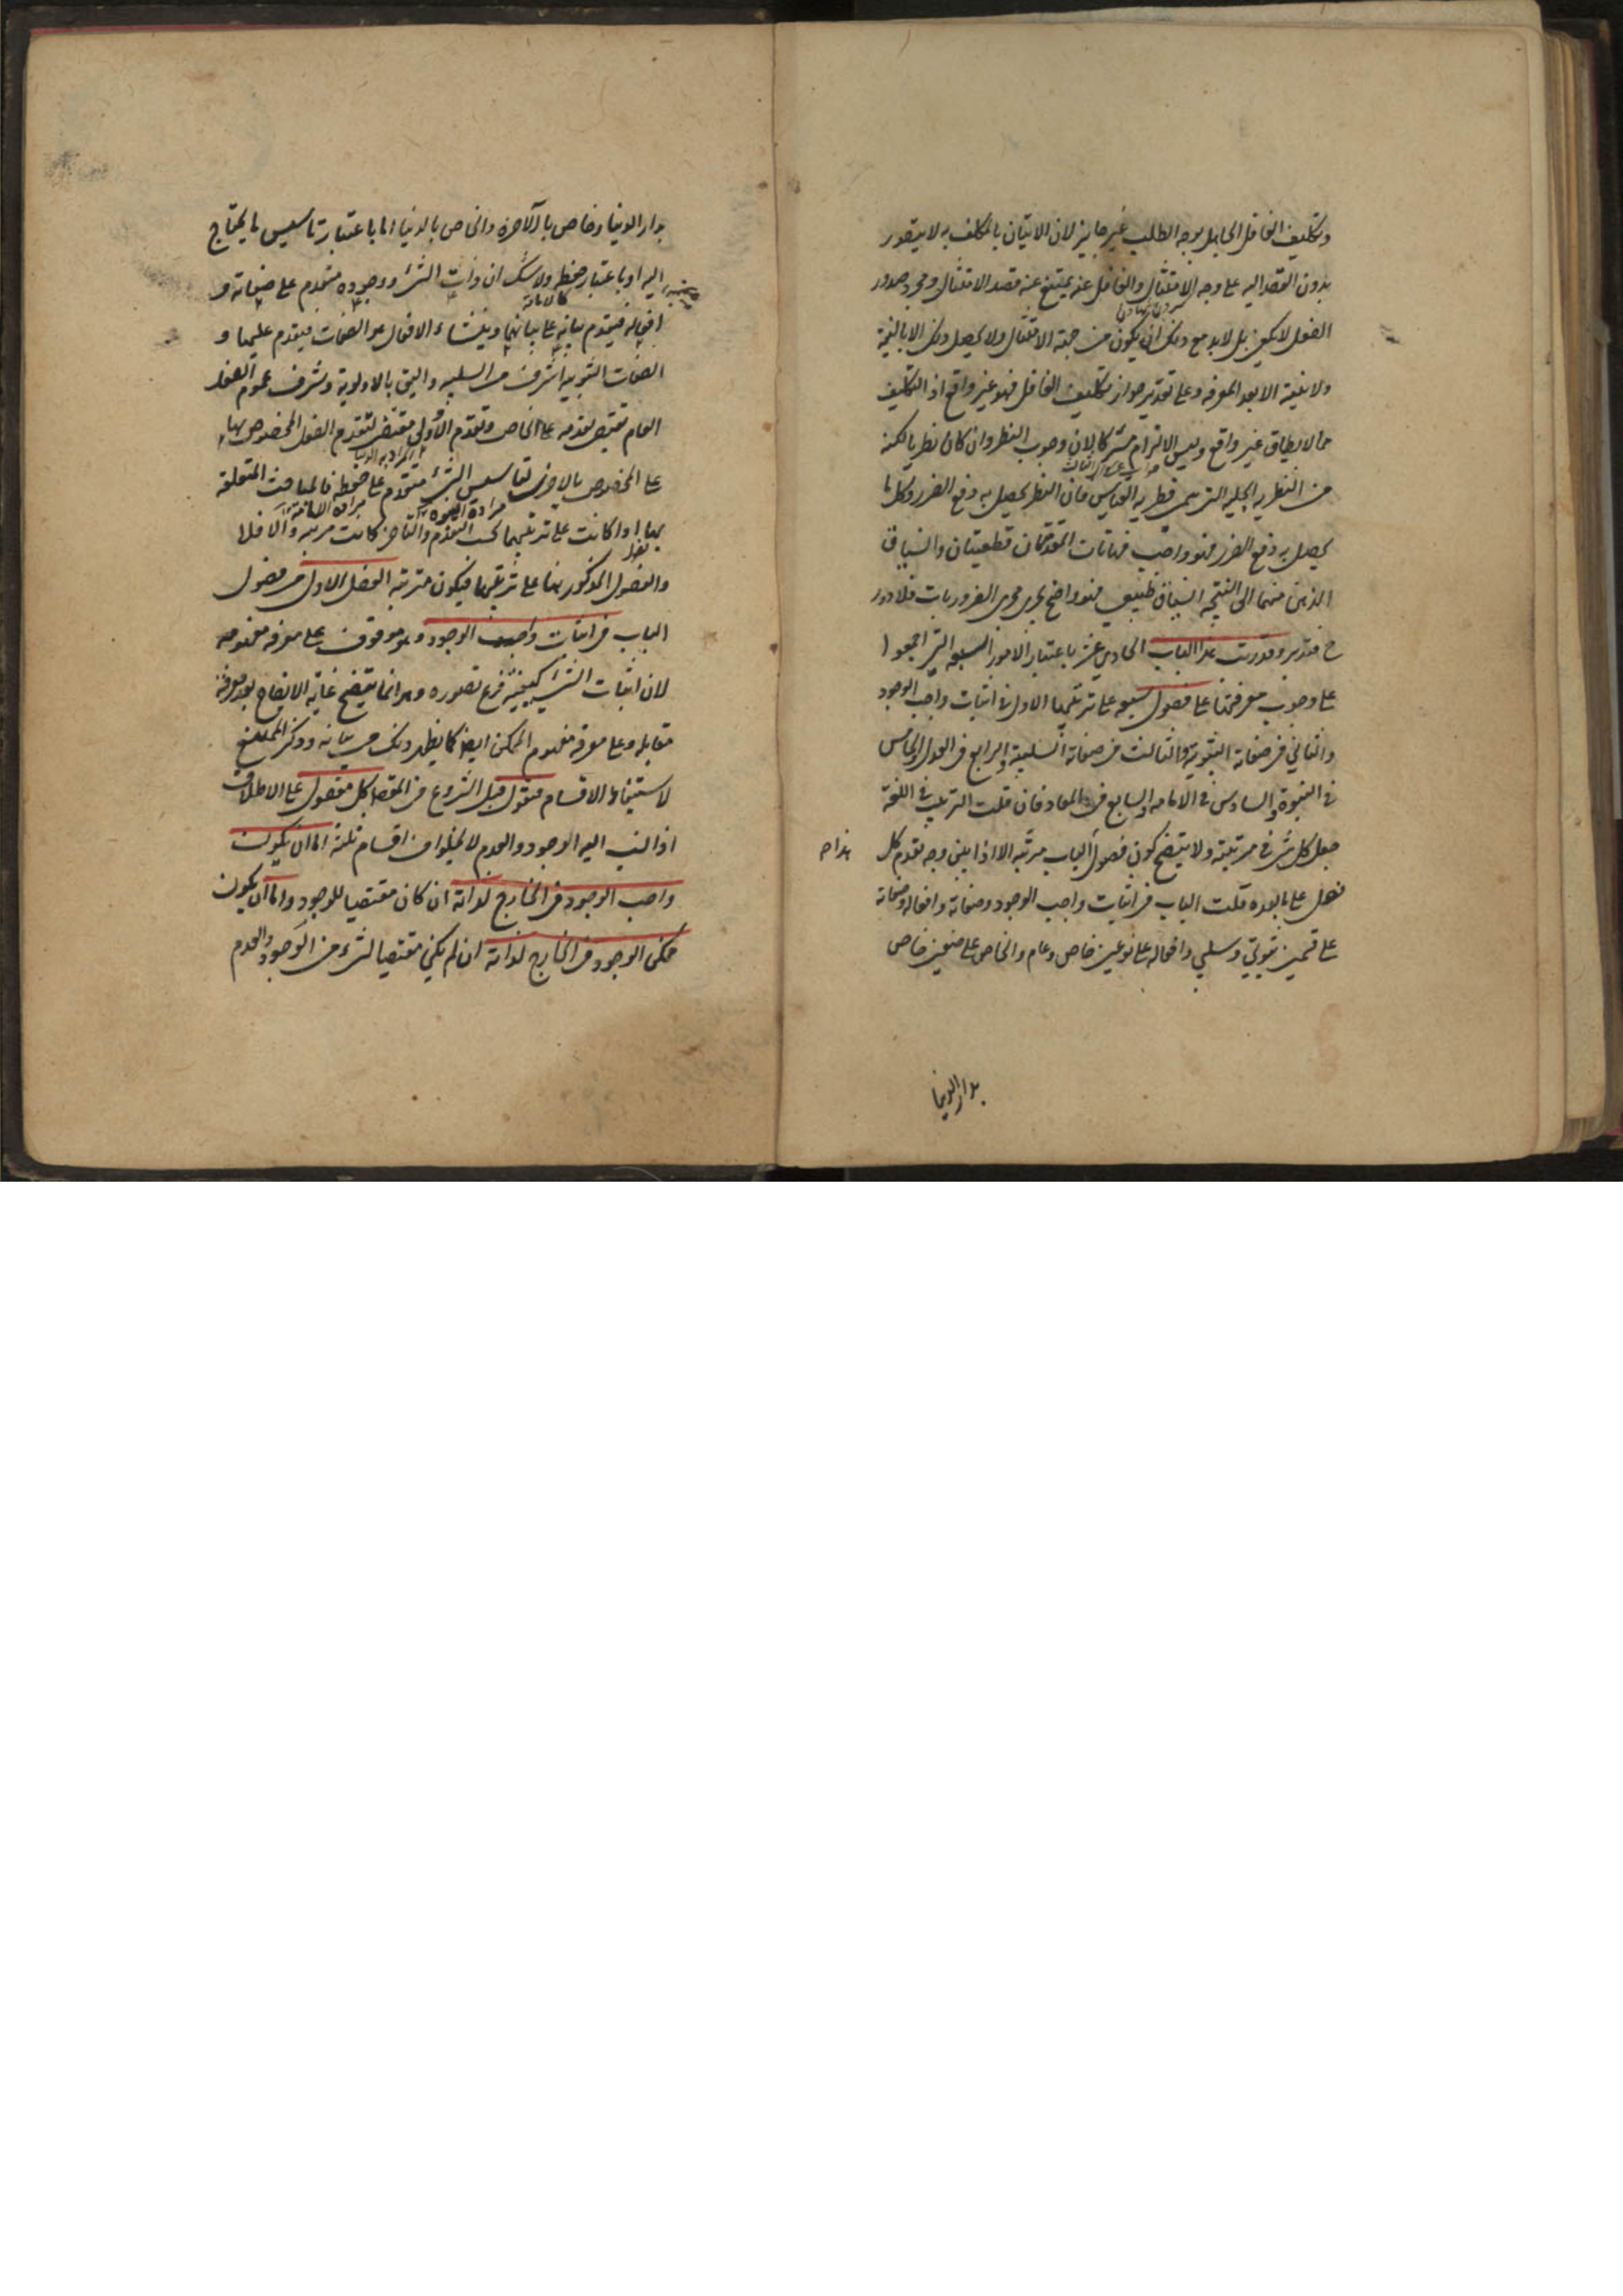 وتكليف الغافل الجاهل بوجه الطلب غير جايز لان الاتيان بالمكلف به لا يتصور
بدون القصد اليه على وجه الامتثال والغافل عنه يمتنع عنه قصد الامتثال ومجرد صدور
الفعل لا يكفي بل لا بد مع ذلك ان يكون من جهة الامتثال ولا يحصل ذلك الا بالنية
ولا نية الا بعد المعرفه وعلى تقدير جواز تكليف الغافل فهو غير واقع اذ التكليف
بما لا يطاق غير واقع وليس الالزام مشتركا لان وجوب النظر وان كان نظريا لكنه
من النظريه الجليه التي هي فطريه القياس فان النظر يحصل به دفع الضرر وكل ما
يحصل به دفع الضرر فهو واجب فهاتان المقدمتان قطعيتان وانسياق
الذهن منهما الى النتيجه انسياق طبيعي فهو واضح يجري مجرى الضروريات فلا دور
ح فتدبر وقد رتبت هذا الباب الحادي عشر باعتبار الامور السبعه التي اجمعوا
على وجوب معرفتها على فصول سبعه على ترتيبها الاول في اثبات واجب الوجود
والثاني في صفاته الثبوتيه والثالث في صفاته السلبيه والرابع في العدل والخامس
في النبوة والسادس في الامامه والسابع في المعاد فان قلت الترتيب في اللغة
جعل كل شئ في مرتبته ولا يتضح كون فصول الباب مرتبه الا اذا بين وجه تقدم كل
هذا ص
فصل على ما بعده قلت الباب في اثبات واجب الوجود وصفاته وافعاله وصفاته
على قسمين ثبوتي وسلبي وافعاله على نوعين خاص وعام والخاص على صنفين خاص
بدار الدنيا
بدار الدنيا وخاص بالآخرة والخاص بالدنيا اما باعتبار تاسيس ما يحتاج
اليه او باعتبار حفظه ولا شك ان ذات الشئ ووجوده متقدم على صفاته و
كالامامة
افعاله فيتقدم بيانه على بيانهما ومنشاء الافعال هو الصفات فيتقدم عليها و
الصفات الثبوتيه اشرف من السلبيه واليق بالاولوية وشرف عموم الفعل
العام يقتضي تقدمه على الخاص وتقدم الاولى مقتضى لتقدم الفعل المخصوص بها
على المخصوص بالاخرى وتاسيس الشئ متقدم على حفظه فالمباحث المتعلقه
بها اذا كانت على ترتيبها بحسب التقدم والتاخر كانت مرتبه والا فلا
والفصول المذكور بها على ترتيبها فيكون مترتبه الفصل الاول من فصول
الباب في اثبات واجب الوجود وهو موقوف على معرفه مفهومه
لان اثبات الشئ كيفيته فرع تصوره وهو انما يتضح غاية الايضاح بمعرفة
مقابله وعلى معرفة مفهوم الممكن ايضا كما يظهر ذلك من بيانه وذكر الممتنع
لاستيفاء الاقسام فنقول قبل الشروع في المقصد كل معقول على الاطلاق
اذا نسب اليه الوجود والعدم لا يخلوا من اقسام ثلثة اما ان يكون
واجب الوجود في الخارج لذاته ان كان مقتضيا للوجود واما ان يكون
ممكن الوجود في الخارج لذاته ان لم يكن مقتضيا لشئ من الوجود والعدم